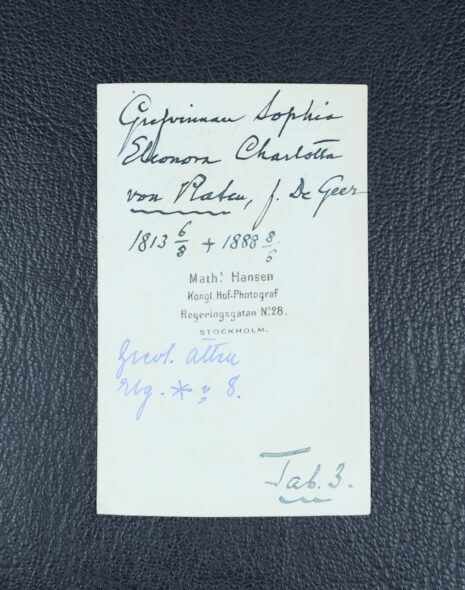 Grefvinnan Sophia
Eleonora Charlotta
von Platen, f. De Geer
1813 6/8 + 1888 8/6.
Math.s Hansen
Kongl. Hof-Photograf
Regeringsgatan No 28.
STOCKHOLM.
ätten
* 8.
Tab. 3.